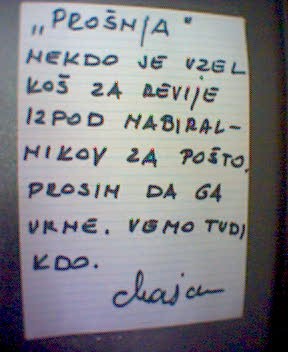 „PROŠNJA"
NEKDO JE VZEL
KOŠ ZA REVIJE
IZPOD NABIRAL-
NIKOV ZA POŠTO.
PROSIM DA GA
VRNE. VEMO TUDI
KDO.